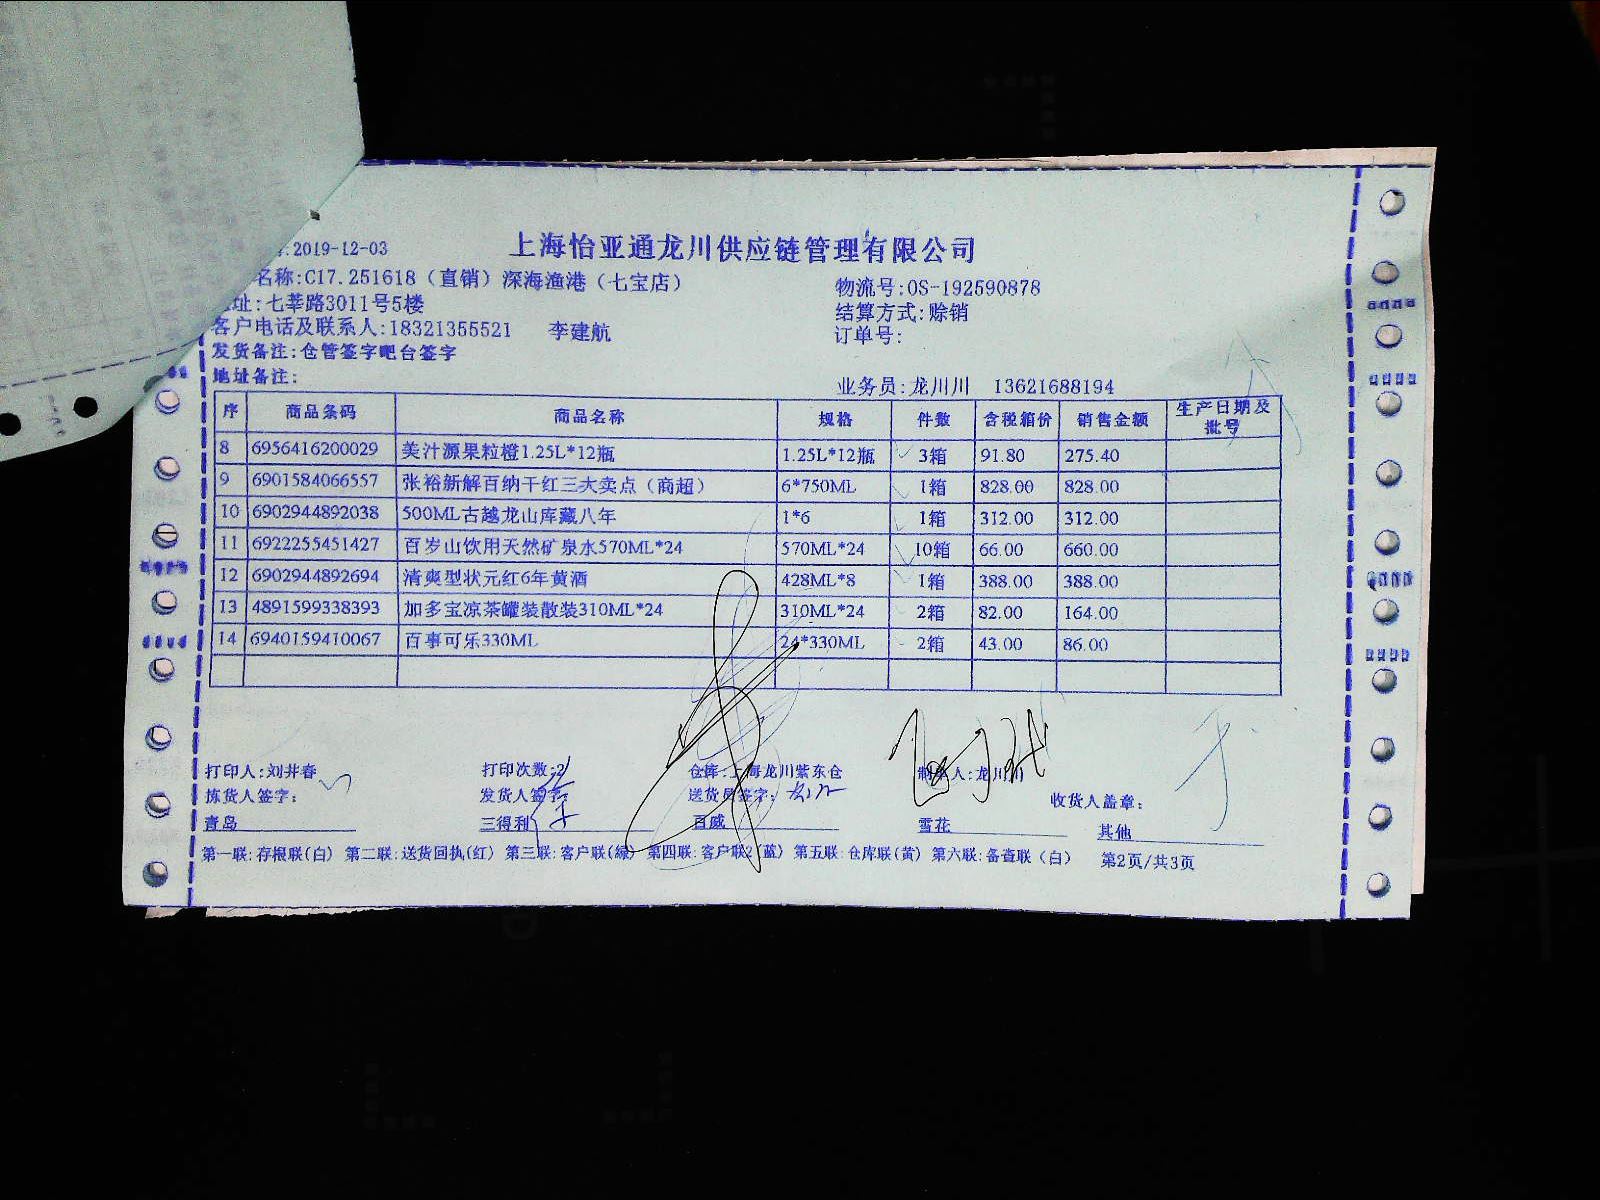 :2019-12-03
上海怡亚通龙川供应链管理有限公司
名称:C17.251618（直销）深海渔港（七宝店）
物流号:OS-192590878
址:七莘路3011号5楼
结算方式:赊销
客户电话及联系人:18321355521 李建航
订单号:
发货备注:仓管签字吧台签字
地址备注:
业务员:龙川川 13621688194
序 商品条码 商品名称 规格 件数 含税箱价 销售金额 生产日期及批号
8 6956416200029 美汁源果粒橙1.25L*12瓶 1.25L*12瓶 3箱 91.80 275.40
9 6901584066557 张裕新解百纳干红三大卖点（商超） 6*750ML 1箱 828.00 828.00
10 6902944892038 500ML古越龙山库藏八年 1*6 1箱 312.00 312.00
11 6922255451427 百岁山饮用天然矿泉水570ML*24 570ML*24 10箱 66.00 660.00
12 6902944892694 清爽型状元红6年黄酒 428ML*8 1箱 388.00 388.00
13 4891599338393 加多宝凉茶罐装散装310ML*24 310ML*24 2箱 82.00 164.00
14 6940159410067 百事可乐330ML 24*330ML 2箱 43.00 86.00
打印人:刘井春 打印次数:2 仓库:上海龙川紫东仓 制单人:龙川川
拣货人签字: 发货人签字: 送货员签字: 收货人盖章:
青岛 三得利 百威 雪花 其他
第一联:存根联(白) 第二联:送货回执(红) 第三联:客户联(绿) 第四联:客户联2(蓝) 第五联:仓库联(黄) 第六联:备查联（白） 第2页/共3页